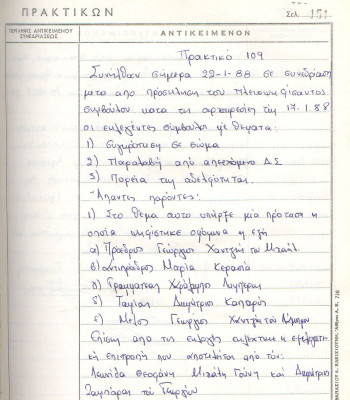 ΠΡΑΚΤΙΚΩΝ
Σελ. 151
ΠΕΡΙΛΗΨΙΣ ΑΝΤΙΚΕΙΜΕΝΟΥ
ΣΥΝΕΔΡΙΑΣΕΩΣ
ΑΝΤΙΚΕΙΜΕΝΟΝ
Πρακτικό 109
Συνήλθαν σήμερα 22-1-88 σε συνεδρίαση
μετά από πρόσκληση του πλειοψηφίσαντος
συμβούλου κατά τις αρχαιρεσίες της 17.1.88
οι εκλεγέντες σύμβουλοι με θέματα:
1) Συγκρότηση σε σώμα
2) Παραλαβή από απερχόμενο Δ.Σ
3) Πορεία της αδελφότητας.
Άπαντες παρόντες:
1) Στο θέμα αυτό υπήρξε μία πρόταση η
οποία ψηφίστηκε ομόφωνα η εξής
α) Πρόεδρος Γεώργιος Χαντζής του Μιχαήλ
β) αντιπρόεδρος Μαρία Κερασιά
γ) Γραμματέας
δ) Ταμίας Δημήτριος
ε) Μέλος Γεώργιος Χαντζής του
Επίσης από τις εκλογές εκλέχτηκε η εξελεγκτι-
κή επιτροπή που αποτελείται από τους:
Λεωνίδα Θεοφάνη Μιχάλη Γούνη και Δημήτριο
του Γεωργίου